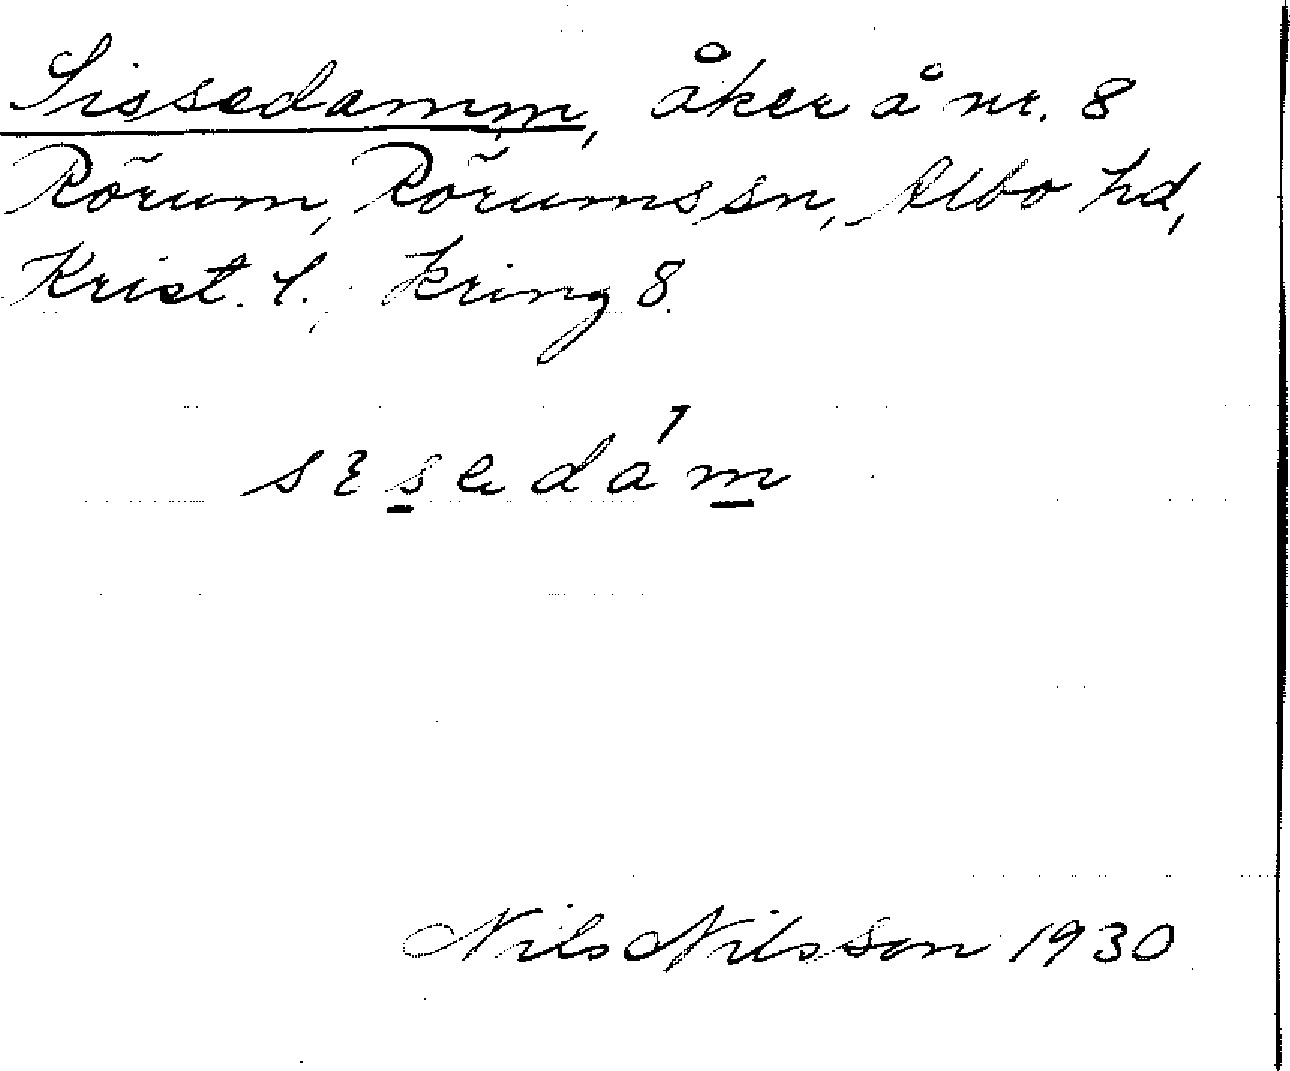 Sissedamm, åker å nr. 8
Rörum, Rörums sn, Albo hd,
Krist. l. kring 8.
sɛsedám
Nils Nilsson 1930